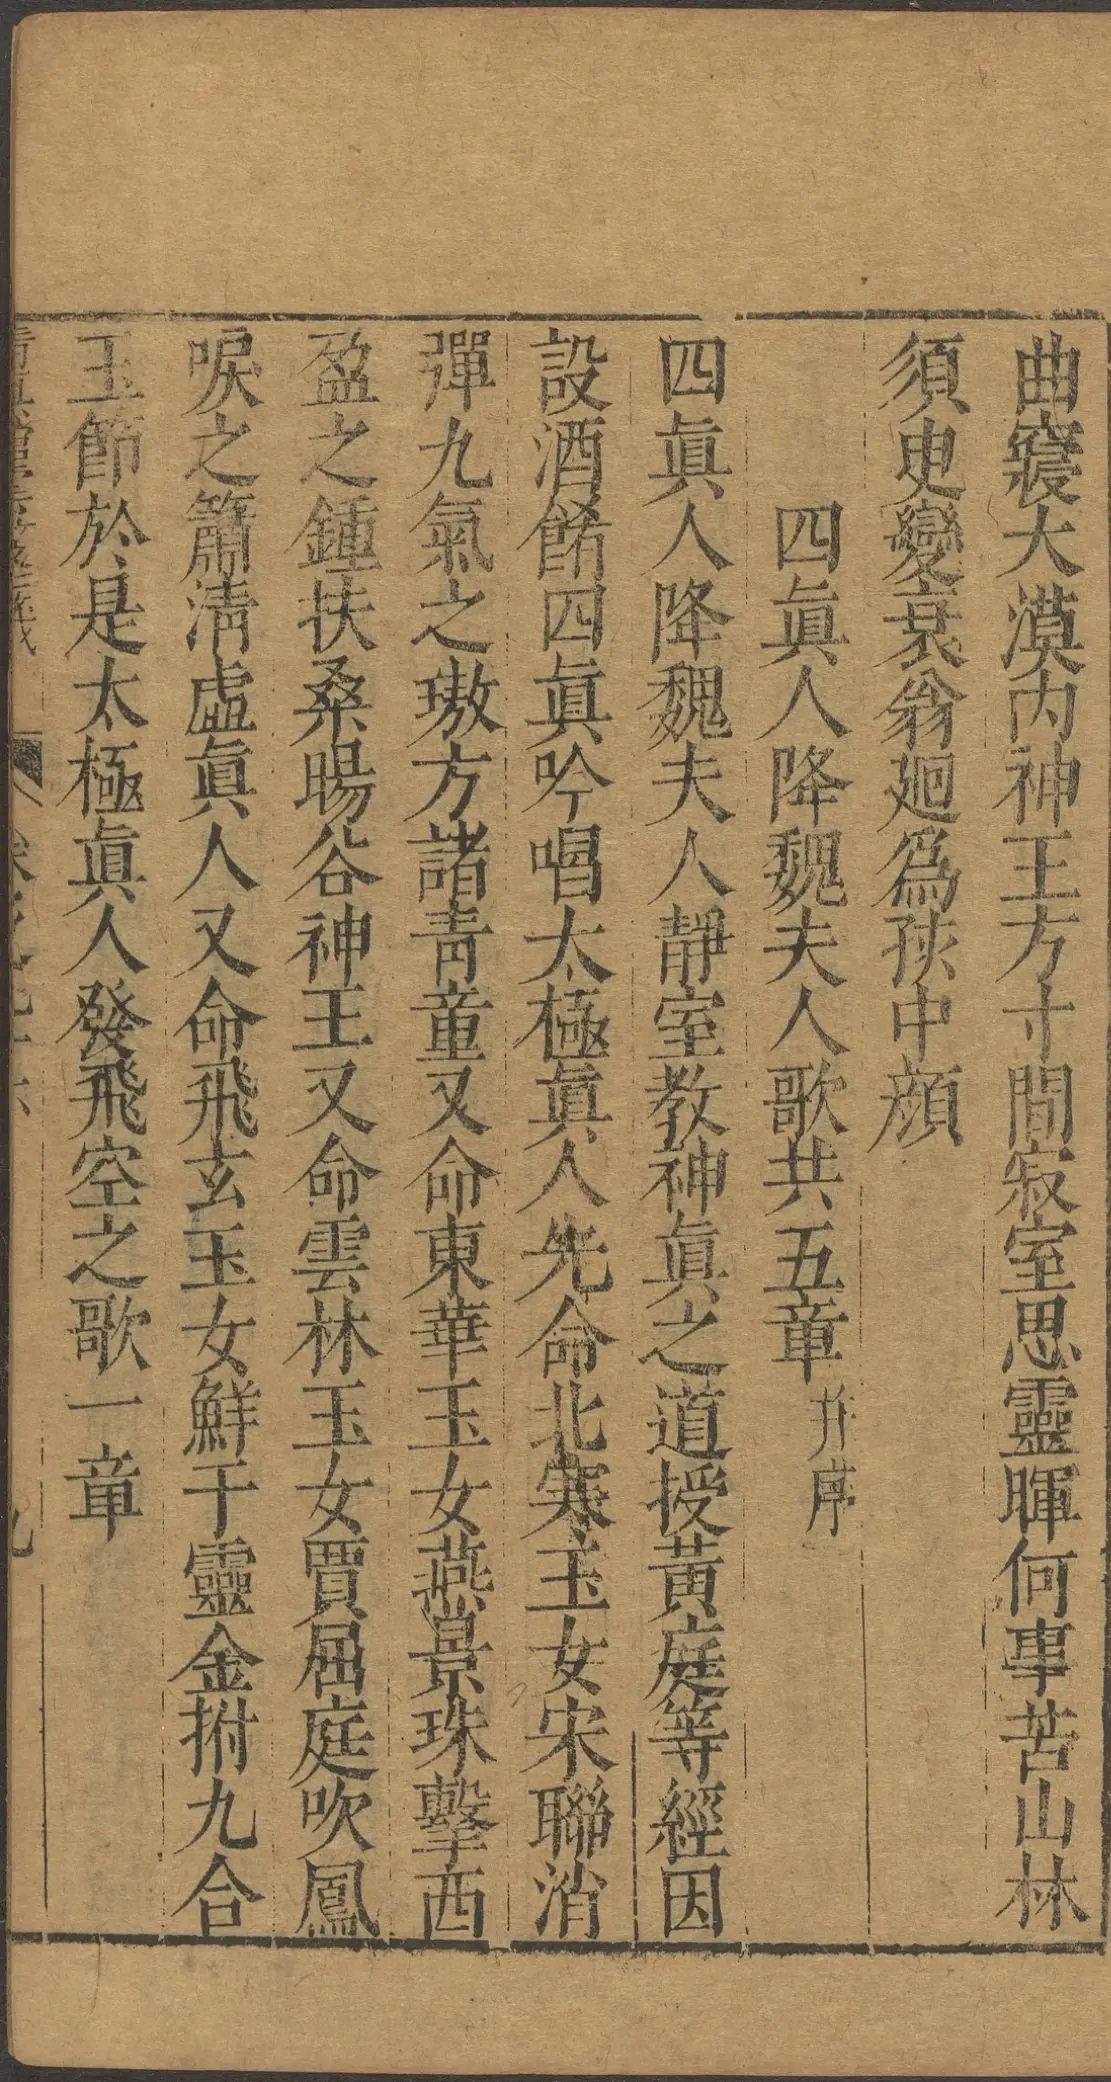 曲寢大漠內神王方寸間寂室思靈暉何事苦山林
須臾變衰翁廻爲孩中顔
四眞人降魏夫人歌共五章并序
四眞人降魏夫人靜室教神眞之道授黃庭等經因
設酒餚四眞吟唱太極眞人先命北寒玉女宋聯消
彈九氣之璈方諸青童又命東華玉女燕景珠擊西
盈之鍾扶桑暘谷神王又命雲林玉女賈屈庭吹鳳
唳之簫淸虛眞人又命飛玄玉女鮮于靈金拊九合
玉節於是太極眞人發飛空之歌一章
九